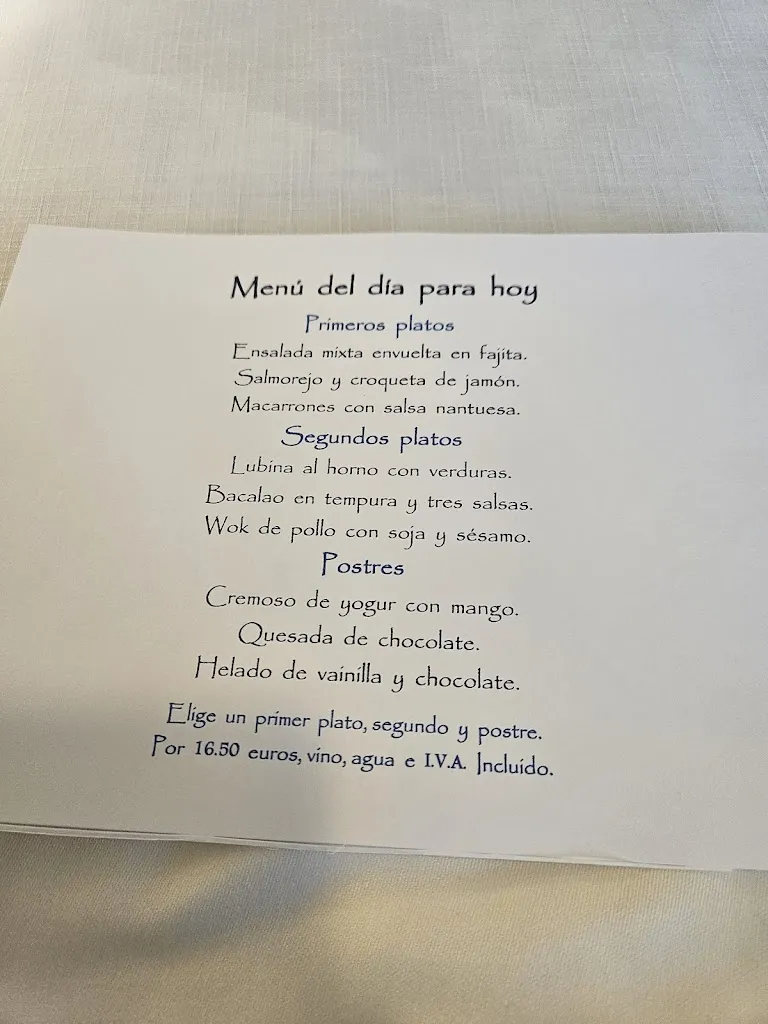 Menú del día para hoy
Primeros platos
Ensalada mixta envuelta en fajita.
Salmorejo y croqueta de jamón.
Macarrones con salsa nantuesa.
Segundos platos
Lubina al horno con verduras.
Bacalao en tempura y tres salsas.
Wok de pollo con soja y sésamo.
Postres
Cremoso de yogur con mango.
Quesada de chocolate.
Helado de vainilla y chocolate.
Elige un primer plato, segundo y postre.
Por 16.50 euros, vino, agua e I.V.A. Incluido.